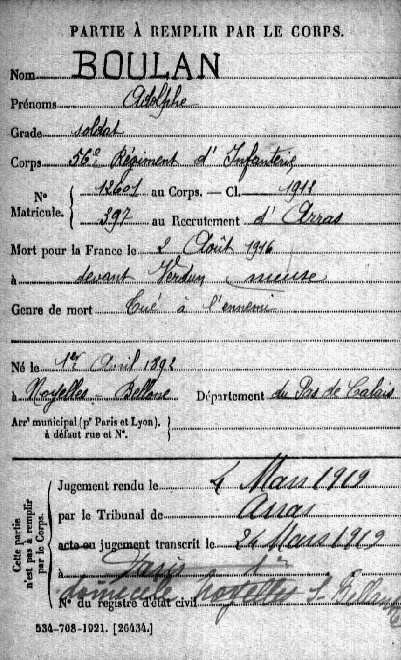 PARTIE À REMPLIR PAR LE CORPS.
Nom BOULAN
Prénoms Adolphe
Grade soldat
Corps 56e Régiment d'Infanterie
N° Matricule. { 12601 au Corps. — Cl. 1912
397 au Recrutement d'Arras
Mort pour la France le 2 Août 1916
à devant Verdun meuse
Genre de mort Tué à l'ennemi
Né le 1er Avril 1892
à Noyelles - Bellone Département du Pas de Calais
Arrt municipal (pr Paris et Lyon), à défaut rue et N°. }
Cette partie n'est pas à remplir par le Corps.
Jugement rendu le 4 Mars 1919
par le Tribunal de Arras
acte ou jugement transcrit le 24 Mars 1919
à Paris
domicile Noyelles S Bellonne
N° du registre d'état civil
534-708-1921. [26434.]